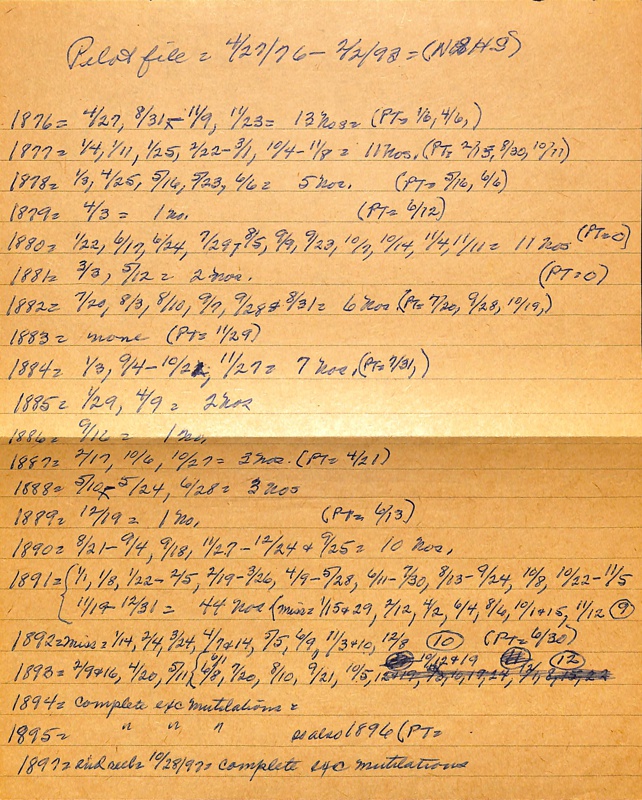 Pilot file = 4/27/76 - 2/2/93 = (N8HS)
1876 = 4/27, 8/31 - 11/9, 11/23 = 13 Nos = (PT = 1/6, 4/6,)
1877 = 1/4, 1/11, 1/25, 2/22 - 3/1, 10/4 - 11/8 = 11 Nos. (PT = 2/15, 8/30, 10/11)
1878 = 1/3, 4/25, 5/16, 5/23, 6/6 = 5 Nos. (PT = 5/16, 6/6)
1879 = 4/3 = 1 No. (PT = 6/12)
1880 = 1/22, 6/17, 6/24, 7/29 + 8/5, 9/9, 9/23, 10/7, 10/14, 11/4, 11/11 = 11 Nos (PT = 0)
1881 = 3/3, 5/12 = 2 Nos. (PT = 0)
1882 = 7/20, 8/3, 8/10, 9/7, 9/28 & 8/31 = 6 Nos. (PT = 7/20, 9/28, 10/19,)
1883 = none (PT = 11/29)
1884 = 1/3, 9/4 - 10/2, 11/27 = 7 Nos, (PT = 7/31,)
1885 = 1/29, 4/9 = 2 Nos
1886 = 9/16 = 1 No,
1887 = 2/17, 10/6, 10/27 = 3 Nos. (PT = 4/21)
1888 = 5/10 - 5/24, 6/28 = 3 Nos
1889 = 12/19 = 1 No. (PT = 6/13)
1890 = 8/21 - 9/4, 9/18, 11/27 - 12/24 & 9/25 = 10 Nos,
1891 = { 1/1, 1/8, 1/22 - 2/5, 2/19 - 3/26, 4/9 - 5/28, 6/11 - 7/30, 8/13 - 9/24, 10/8, 10/22 - 11/5
11/19 - 12/31 = 44 Nos (miss = 1/15 & 29, 2/12, 4/2, 6/4, 8/6, 10/1 & 15, 11/12 (9)
1892 = miss = 1/14, 2/4, 3/24, 4/7 & 14, 5/5, 6/9, 11/3 & 10, 12/8 (10) (PT = 6/30)
1893 = 2/9 & 16, 4/20, 5/11 { 6/1 6/8, 7/20, 8/10, 9/21, 10/5, 10/12 & 19 (12)
1894 = complete exc mutilations =
1895 = " " " as also 1896 (PT =
1897 = and incl = 10/28/97 = complete exc mutilations